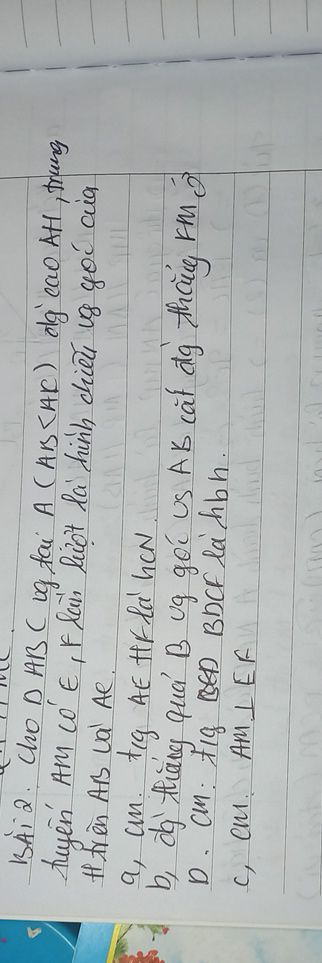 BÀi 2. Cho D ABC vg tại A (AB<AC) đg cao AH, trung
tuyến AM có E, F lần lượt là hình chiếu vg góc của
H trên AB và AC.
a, cm. tig AE HF là hcN.
b, đg thẳng quá B vg góc vs AB cắt đg thẳng FM ở
D. cm. tig BDCF là hbh.
c, cm. AM ⊥ EF